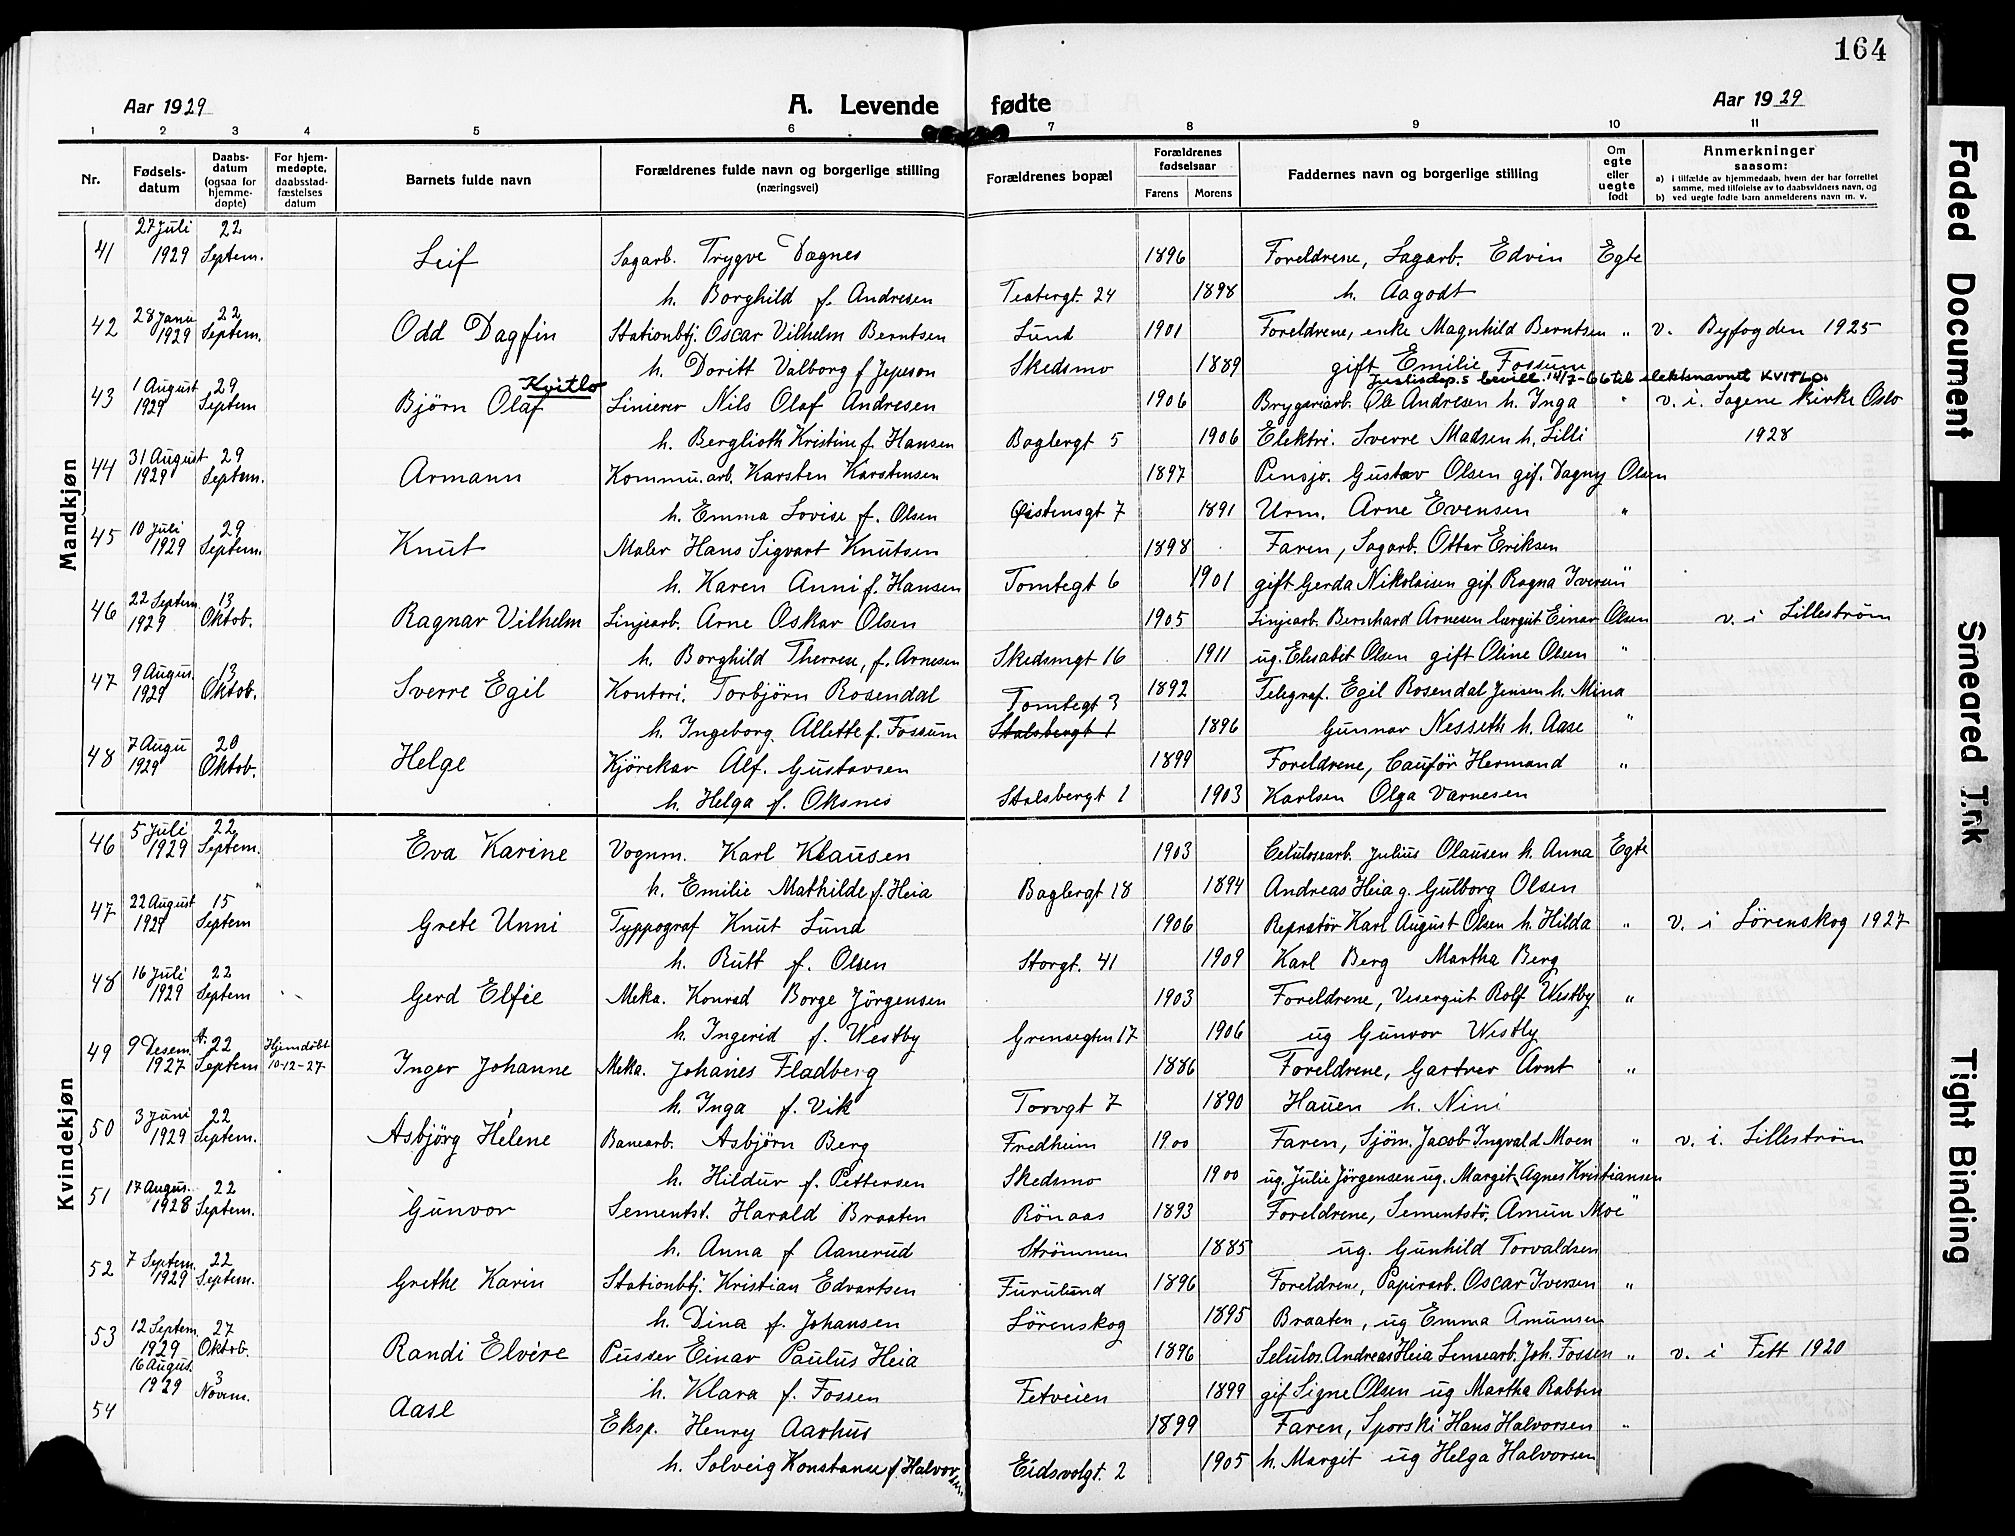 164
Aar 1929 A. Levende fødte Aar 1929
1 2 3 4 5 6 7 8 9 10 11
Nr. Fødsels-datum Daabs-datum (ogsaa for hjemme-døpte) For hjem-medøpte, daabsstad-fæstelses datum Barnets fulde navn Forældrenes fulde navn og borgerlige stilling (næringsvei) Forældrenes bopæl Forældrenes fødselsaar Farens Morens Faddernes navn og borgerlige stilling Om egte eller uegte født Anmerkninger saasom:
a) i tilfælde av hjemmedaab, hvem der har forrettet samme, med tilføielse av to daabsvidners navn, og
b) ved uegte fødte barn anmelderens navn m. v.
Mandkjøn
41 27 Juli 1929 22 Septem. Leif Sagarb. Trygve Dagnes 1896 Foreldrene, Sagarb. Edvin Egte
h. Borghild f. Andresen Teatergt. 24 1898 h. Aagodt
42 28 Janu 1929 22 Septem. Odd Dagfin Stationbtj. Oscar Vilhelm Berntsen Lund 1901 Foreldrene, enke Magnhild Berntsen " v. Byfogden 1925
h. Doritt Valborg f Jepeson Skedsmo 1889 gift Emilie Fossum
Kvitlo Justisdep.s bevill. 14/7-66 til slektsnavnet KVITLO.
43 1 August 1929 29 Septem Bjørn Olaf Linierer Nils Olaf Andresen 1906 Brygeriarb. Ole Andresen h. Inga " v. i. Sagene kirke Oslo
h. Berglioth Kristine f. Hansen Baglergt 5 1906 Elektri. Sverre Madsen h. Lilli 1928
44 31 August 1929 29 Septem. Armann Kommu.arb. Karsten Karstensen 1897 Pensjo. Gustav Olsen gif. Dagny Olsen
h. Emma Lovise f. Olsen Østensgt 7 1891 Urm. Arne Evensen "
45 10 Juli 1929 29 Septem. Knut Maler Hans Sigvart Knutsen 1898 Faren, Sagarb. Ottar Eriksen
h. Karen Anni f. Hansen Tomtegt 6 1901 gift Gerda Nikolaisen gif. Ragna Iversen "
46 22 Septem. 1929 13 Oktob. Ragnar Vilhelm Linjearb. Arne Oskar Olsen 1905 Linjearb. Bernhard Arnesen lærgut Einar Olsen v. i Lillestrøm
h. Borghild Therese, f. Arnesen Skedsmgt 16 1911 ug. Elisabet Olsen gift Oline Olsen "
47 9 Augus. 1929 13 Oktob. Sverre Egil Kontori. Torbjørn Rosendal Tomtegt 3 1892 Telegraf. Egil Rosendal Jensen h. Mina
h. Ingeborg. Allette f. Fossum Stalsbergt 1 1896 Gunnar Nesseth h. Aase "
48 7 Augu 1929 20 Oktob. Helge Kjörekar Alf. Gustavsen 1899 Foreldrene, Cauför Hermand "
h. Helga f. Oksnes Stalsbergt 1 1903 Karlsen Olga Varnesen
Kvindekjøn
46 5 Juli 1929 22 Septem. Eva Karine Vognm. Karl Klausen 1903 Celulosearb. Julius Olausen h. Anna Egte
h. Emilie Mathilde f. Heia Baglergt 18 1894 Andreas Heia g. Gulborg Olsen
47 22 August 1929 15 Septem Grete Unni Typpograf Knut Lund 1906 Reprstör Karl August Olsen h. Hilda " v. i Lörenskog 1927
h. Rutt f. Olsen Storgt. 41 1909 Karl Berg Martha Berg
48 16 Juli 1929 22 Septem Gerd Elfie Meka. Konrad Borge Jörgensen 1903 Foreldrene, Visergut Rolf Westby "
h. Ingerid f. Westby Grensegten 17 1906 ug Gunvor Westby
49 9 Desem. 1927 A. 22 Septem Hjemdöbt 10-12-27 Inger Johanne Meka. Johanes Fladberg 1886 Foreldrene, Gartner Arnt "
h. Inga f. Vik Torvgt 7 1890 Hauen h. Nini
50 3 Juni 1929 22 Septem. Asbjørg Hélene Banearb. Asbjørn Berg Fredheim 1900 Faren, Sjöm. Jacob Ingvald Moen " v. i. Lilleström
h. Hildur f. Pettersen Skedsmo 1900 ug. Julie Jörgensen ug. Margit Agnes Kristiansen
51 17 Augus. 1928 22 Septem. Gunvor Sementst. Harald Braaten Rönaas 1893 Foreldrene, Sementstö. Amun Moe "
h. Anna f Aanerud Strömmen 1885 ug. Gunhild Torvaldsen
52 7 Septem. 1929 22 Septem. Grethe Karin Stationbtj. Kristian Edvartsen Furulund 1896 Foreldrene, Papirarb. Oscar Iversen "
h. Dina f. Johansen Lörenskog 1895 Braaten, ug Emma Amunsen
53 12 Septem. 1929 27 Oktob. Randi Elvire Pusser Einar Paulus Heia 1896 Selulos. Andreas Heia Sensearb. Joh. Fossen " v. i Fett 1920
h. Klara f. Fossen Fetveien 1899 gif Signe Olsen ug Martha Rabben
54 16 Augus. 1929 3 Novem. Aase Eksp. Henry Aarhus 1899 Faren, Sporski Hans Halvorsen "
h. Solveig Konstanse f. Halvorsen Eidsvolgt. 2 1905 h. Margit ug Helga Halvorsen
Faded Document
Smeared Ink
Tight Binding